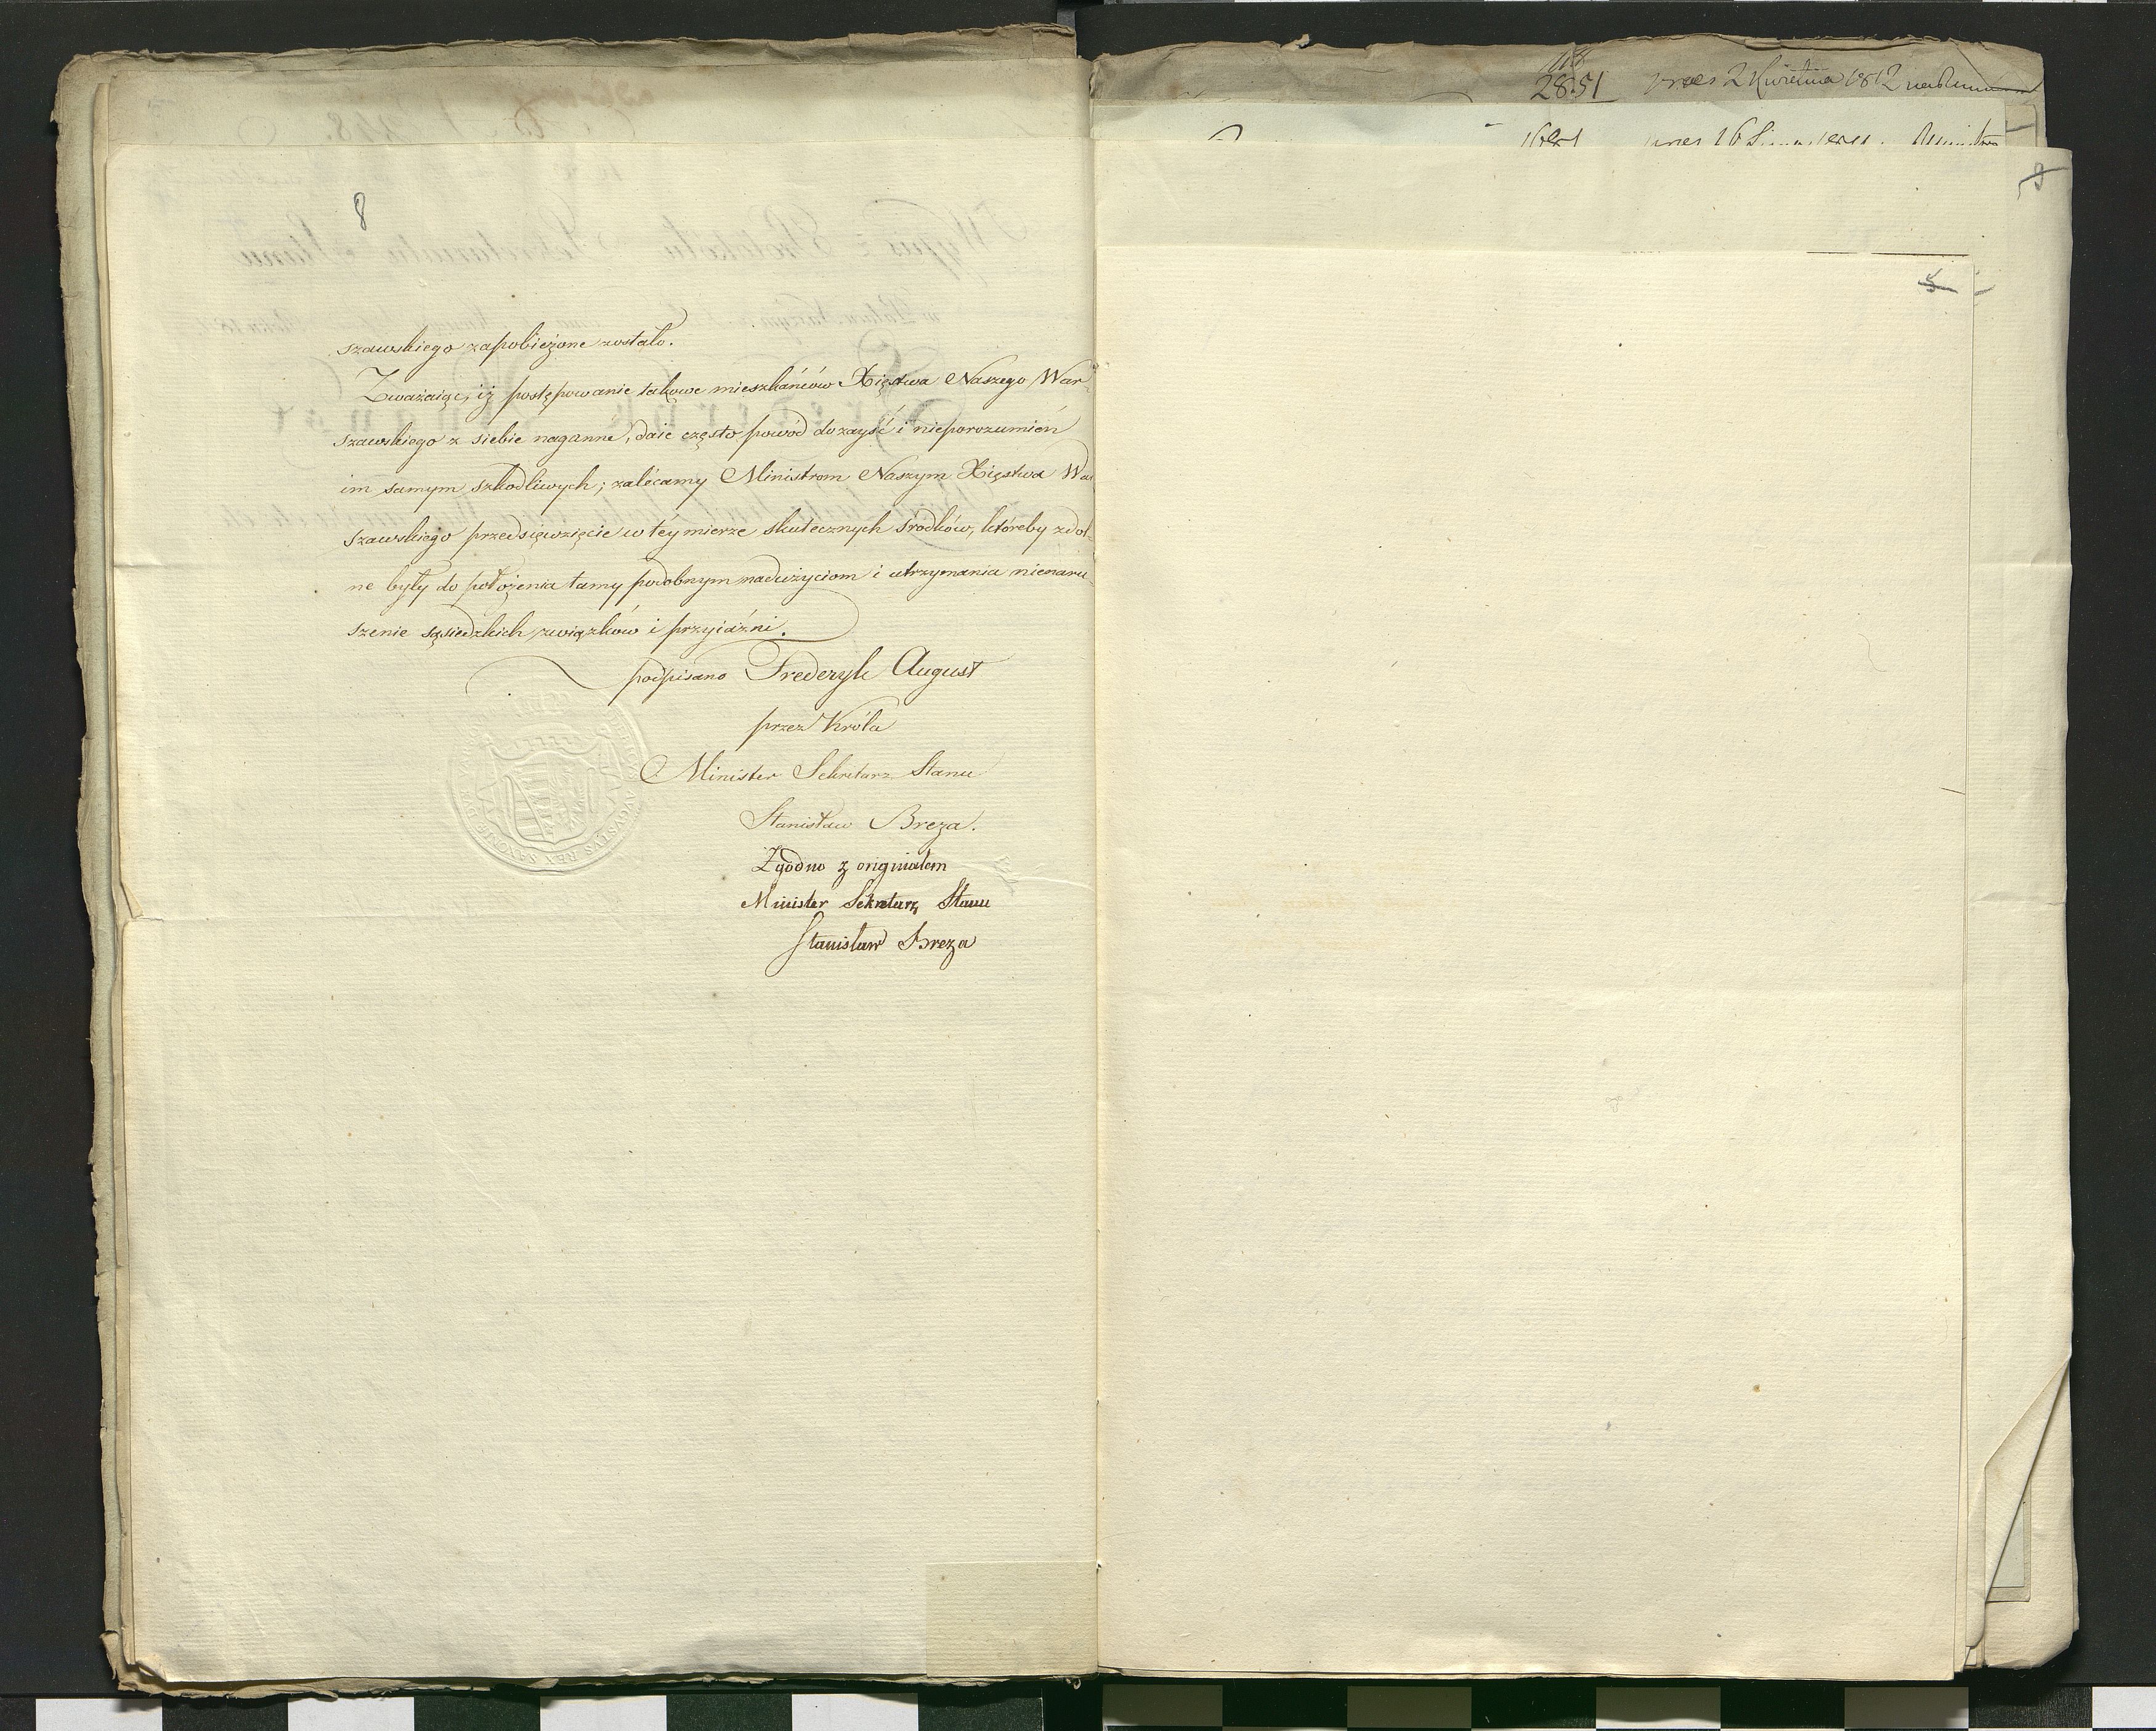 8
szawskiego zapobieżone zostało.
Zważaiąc, iż postępowanie takowe mieszkańców Xięstwa Naszego War-
szawskiego z siebie naganne, daie często powód do zayść i nieporozumień
im samym szkodliwych; zalécamy Ministrom Naszym Xięstwa War
szawskiego przedsięwzięcie w téy mierze skutecznych środków, któreby zdol-
ne były do położenia tamy podobnym nadużyciom i utrzymania nienaru-
szenie sąsiedzkich związków i przyiaźni.
podpisano Frederyk August
przez Króla
Minister Sekretarz Stanu
Stanisław Breza.
Zgodno z originałem
Minister Sekretarz Stanu
Stanisław Breza
AUGUSTVS REX SAXONIÆ
2851 praes 2 Kwietnia 1812
9
5